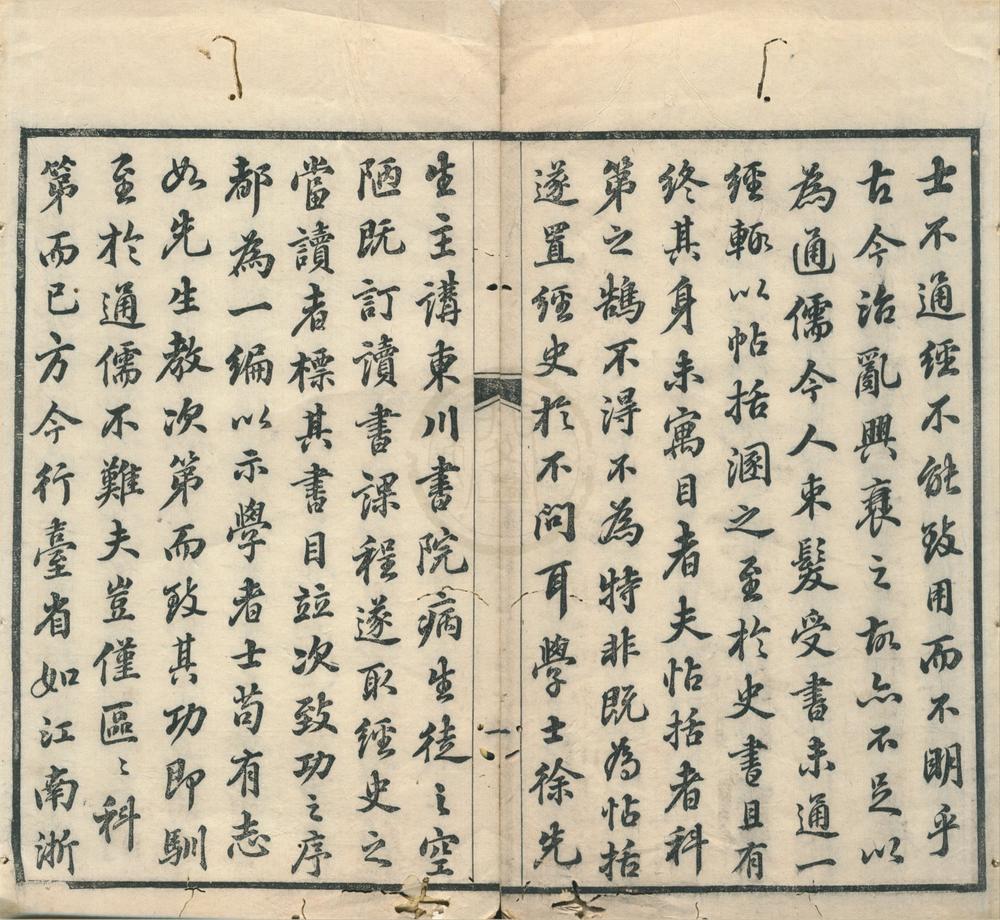 士不通經不能致用而不明乎
古今治亂興衰之故亦不足以
為通儒今人束髮受書未通一
經輒以帖括溷之至於史書且有
終其身未寓目者夫帖括者科
第之鵠不得不為特非既為帖括
遂置經史於不問耳學士徐先
一
生主講東川書院病生徒之空
陋既訂讀書課程遂取經史之
當讀者標其書目並次致功之序
都為一編以示學者士苟有志
如先生教次第而致其功即馴
至於通儒不難夫豈僅區〻科
第而已方今行臺省如江南浙